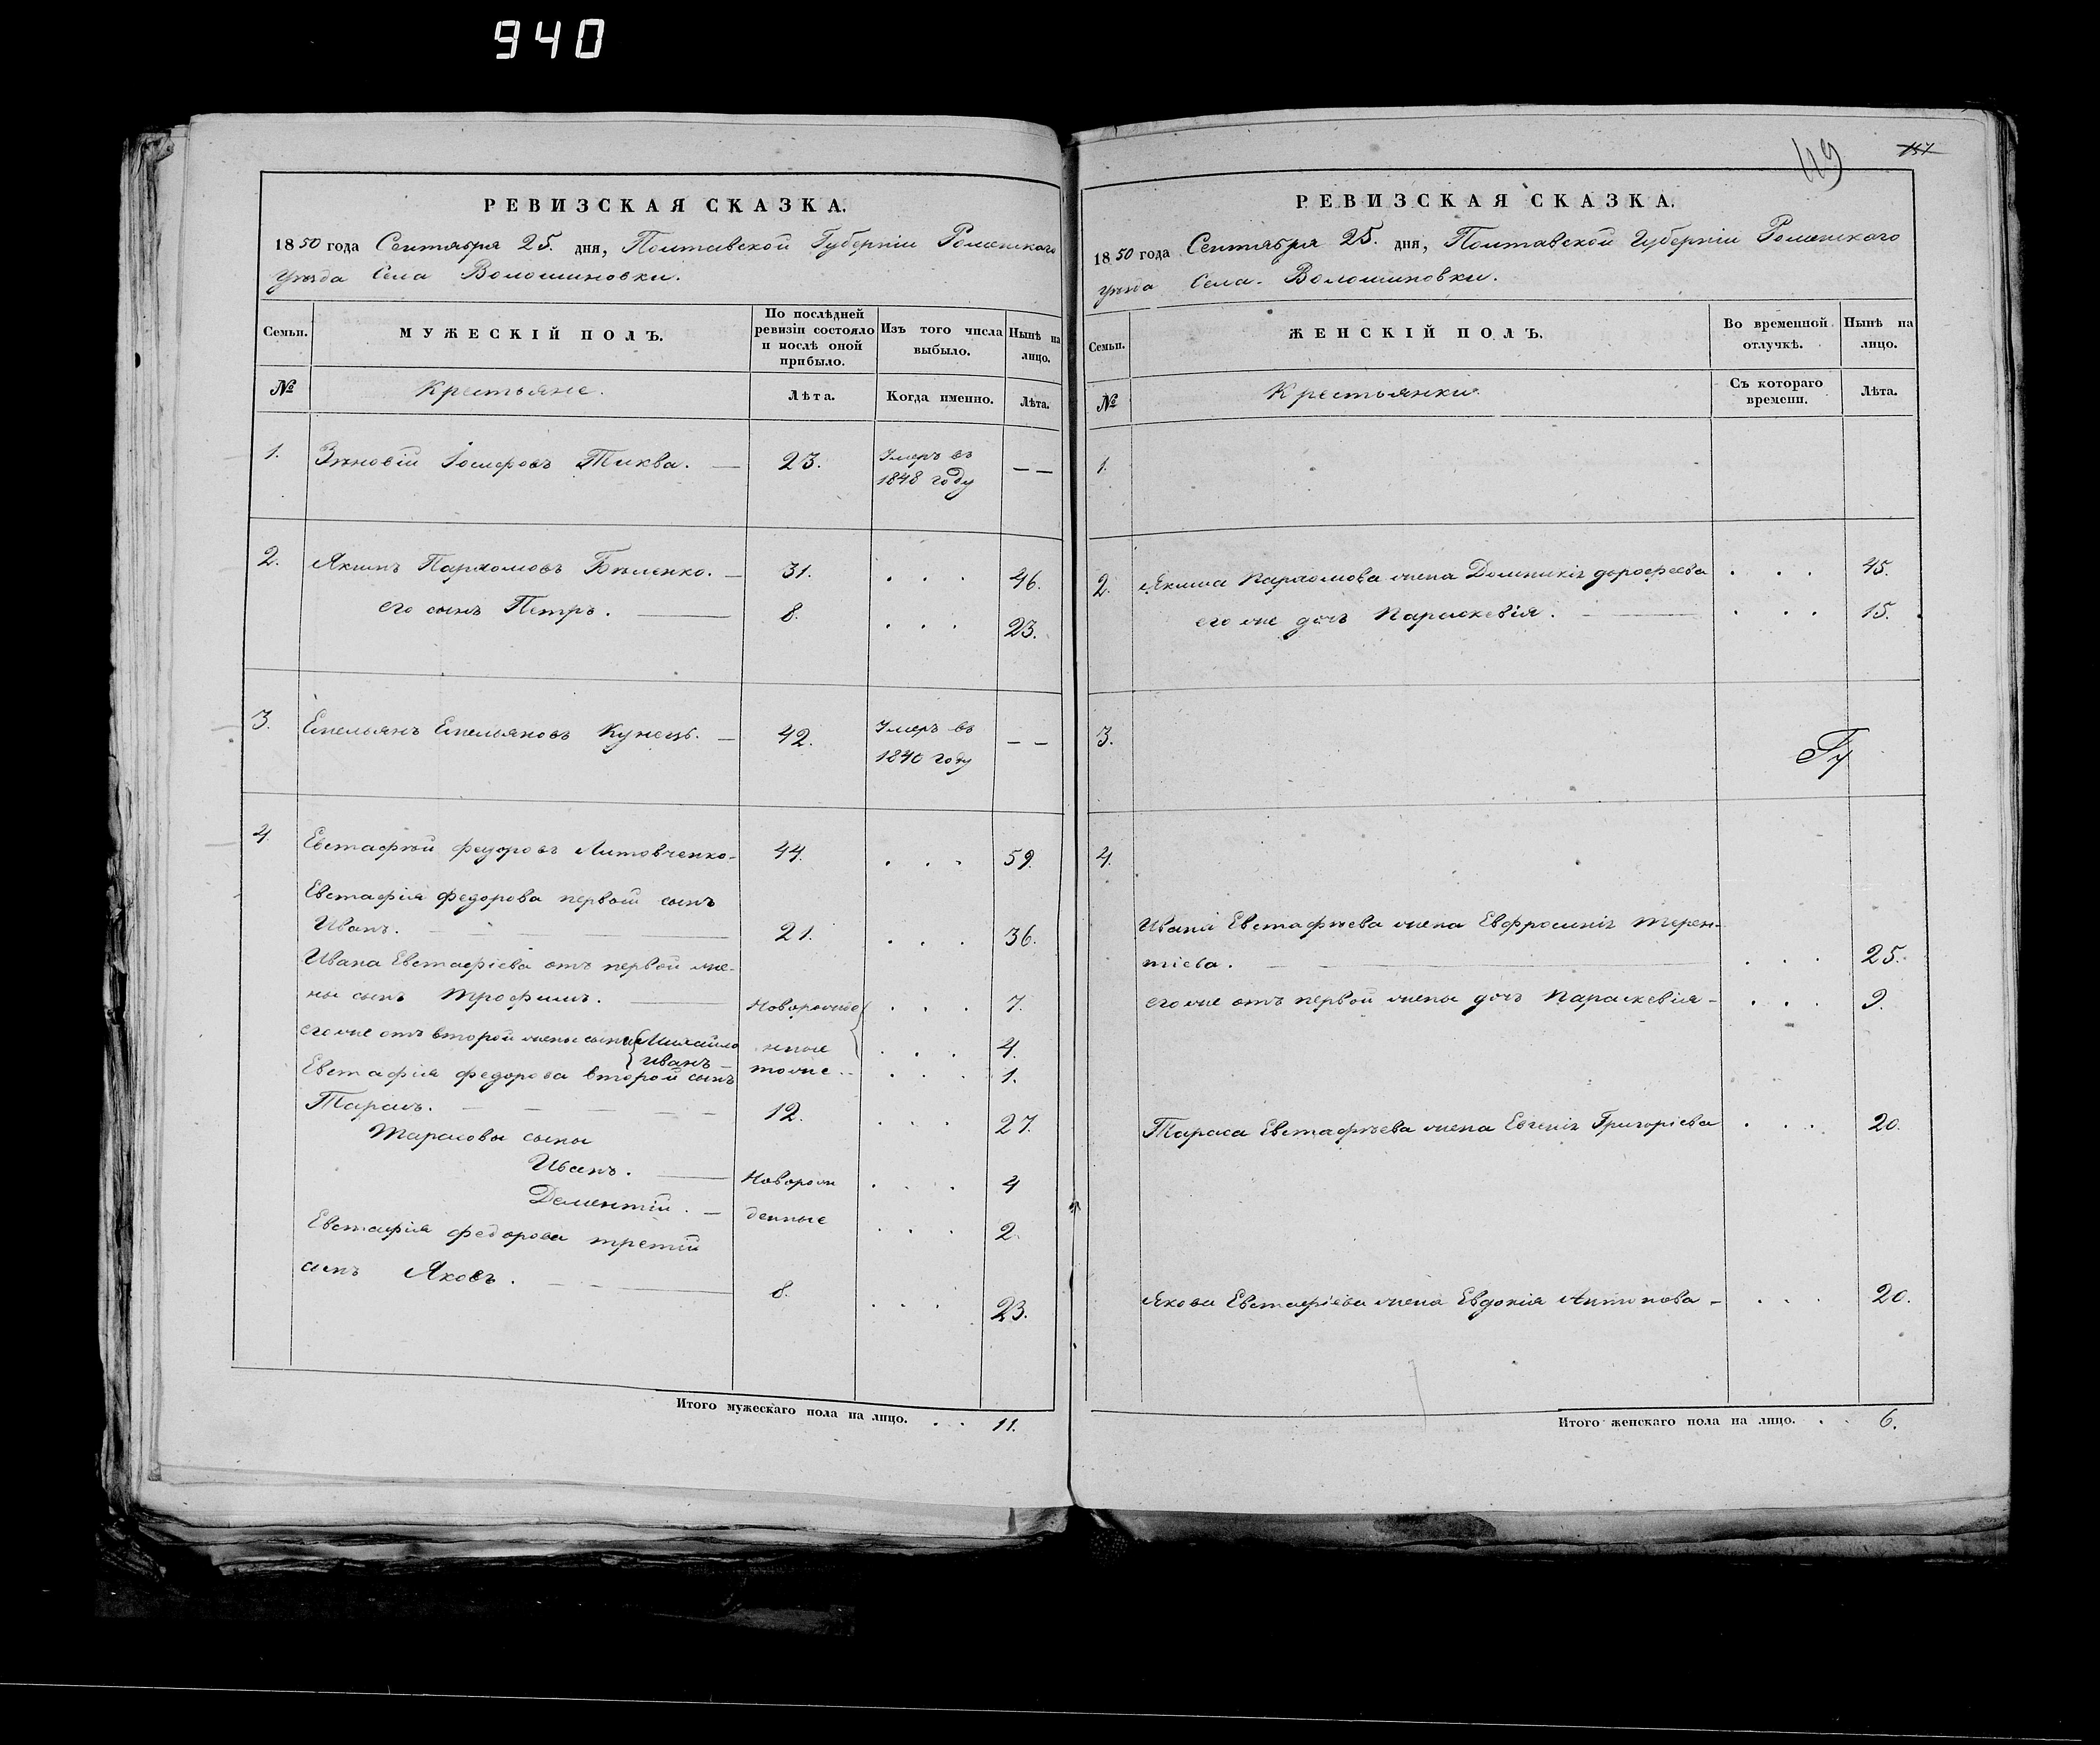 940
РЕВИЗСКАЯ СКАЗКА.
1850 года Сентября 25. дня, Полтавской Губерніи Роменскаго
уѣзда Села Волошиновки.
Семьи.
МУЖЕСКІЙ ПОЛЪ.
По послѣдней
ревизіи состояло
и послѣ оной
прибыло.
Изъ того числа
выбыло.
Нынѣ на
лицо.
№
Крестьяне.
Лѣта.
Когда именно.
Лѣта.
1. Зѣновій Іосифовъ Тиква. — 23. Умеръ въ — —
1848 году
2. Якимъ Пархомовъ Бѣленко. — 31. . . . 46.
его сынъ Петръ. — 8. . . . 23.
3. Емельянъ Емельяновъ Кунецъ. — 42. Умеръ въ — —
1840 году
4. Евстафѣй Федоровъ Литовченко - 44. . . . 59.
Евстафія Федорова первой сынъ
Иванъ. — 21. . . . 36.
Ивана Евстафіева отъ первой же-
ны сынъ Трофимъ. — Новорожде . . . 7.
его же отъ второй жены сыны { Михайло нные . . . 4.
Иванъ — тоже . . . . 1.
Евстафія Федорова второй сынъ
Тарасъ. — — — — — 12. . . . 27.
Тарасовы сыны
Иванъ. — Новорож . . . 4
Дементій. — денные . . . 2.
Евстафія Федорова третій
сынъ Яковъ. — 8. . . . 23.
Итого мужескаго пола на лицо. . . 11.
49
151
РЕВИЗСКАЯ СКАЗКА.
1850 года Сентября 25. дня, Полтавской Губерніи Роменскаго
уѣзда Села Волошиновки.
Семьи.
ЖЕНСКІЙ ПОЛЪ.
Во временной
отлучкѣ.
Нынѣ на
лицо.
№
Крестьянки.
Съ котораго
времени.
Лѣта.
1.
2. Якима Пархомова жена Домникія Дорофеева . . . 45.
его же дочь Параскевія. — . . . 15.
3.
4.
Ивана Евстафѣева жена Евфросинія Терен-
тіева. — . . . 25.
его же отъ первой жены дочь Параскевія - . . . 9.
Тараса Евстафѣева жена Евгенія Григоріева . . . 20.
Якова Евстафіева жена Евдокія Антонова - . . . 20.
Итого женскаго пола на лицо. . . 6.